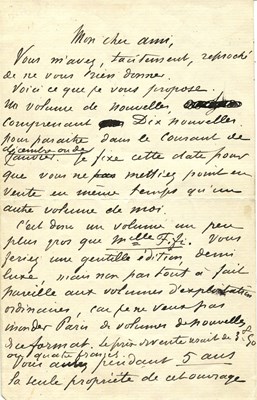 Mon cher ami,
Vous m'avez, tacitement, reproché
de ne vous rien donner.
Voici ce que je vous propose.
Un volume de nouvelles
comprenant Dix nouvelles
pour paraître dans le courant de
décembre ou de
Janvier. Je fixe cette date pour
que vous ne mettiez point en
vente en même temps qu'un
autre volume de moi.
C'est donc un volume un peu
plus gros que Mlle Fifi. Vous
feriez une gentille édition, demi
luxe, mais non pas tout à fait
pareille aux volumes d'exploitation
ordinaires, car je ne veux pas
inonder Paris de volumes de nouvelles
de ce format. Le prix de vente serait de 3f 50
ou quatre francs.
Vous pendant 5 ans
la seule propriété de cet ouvrage